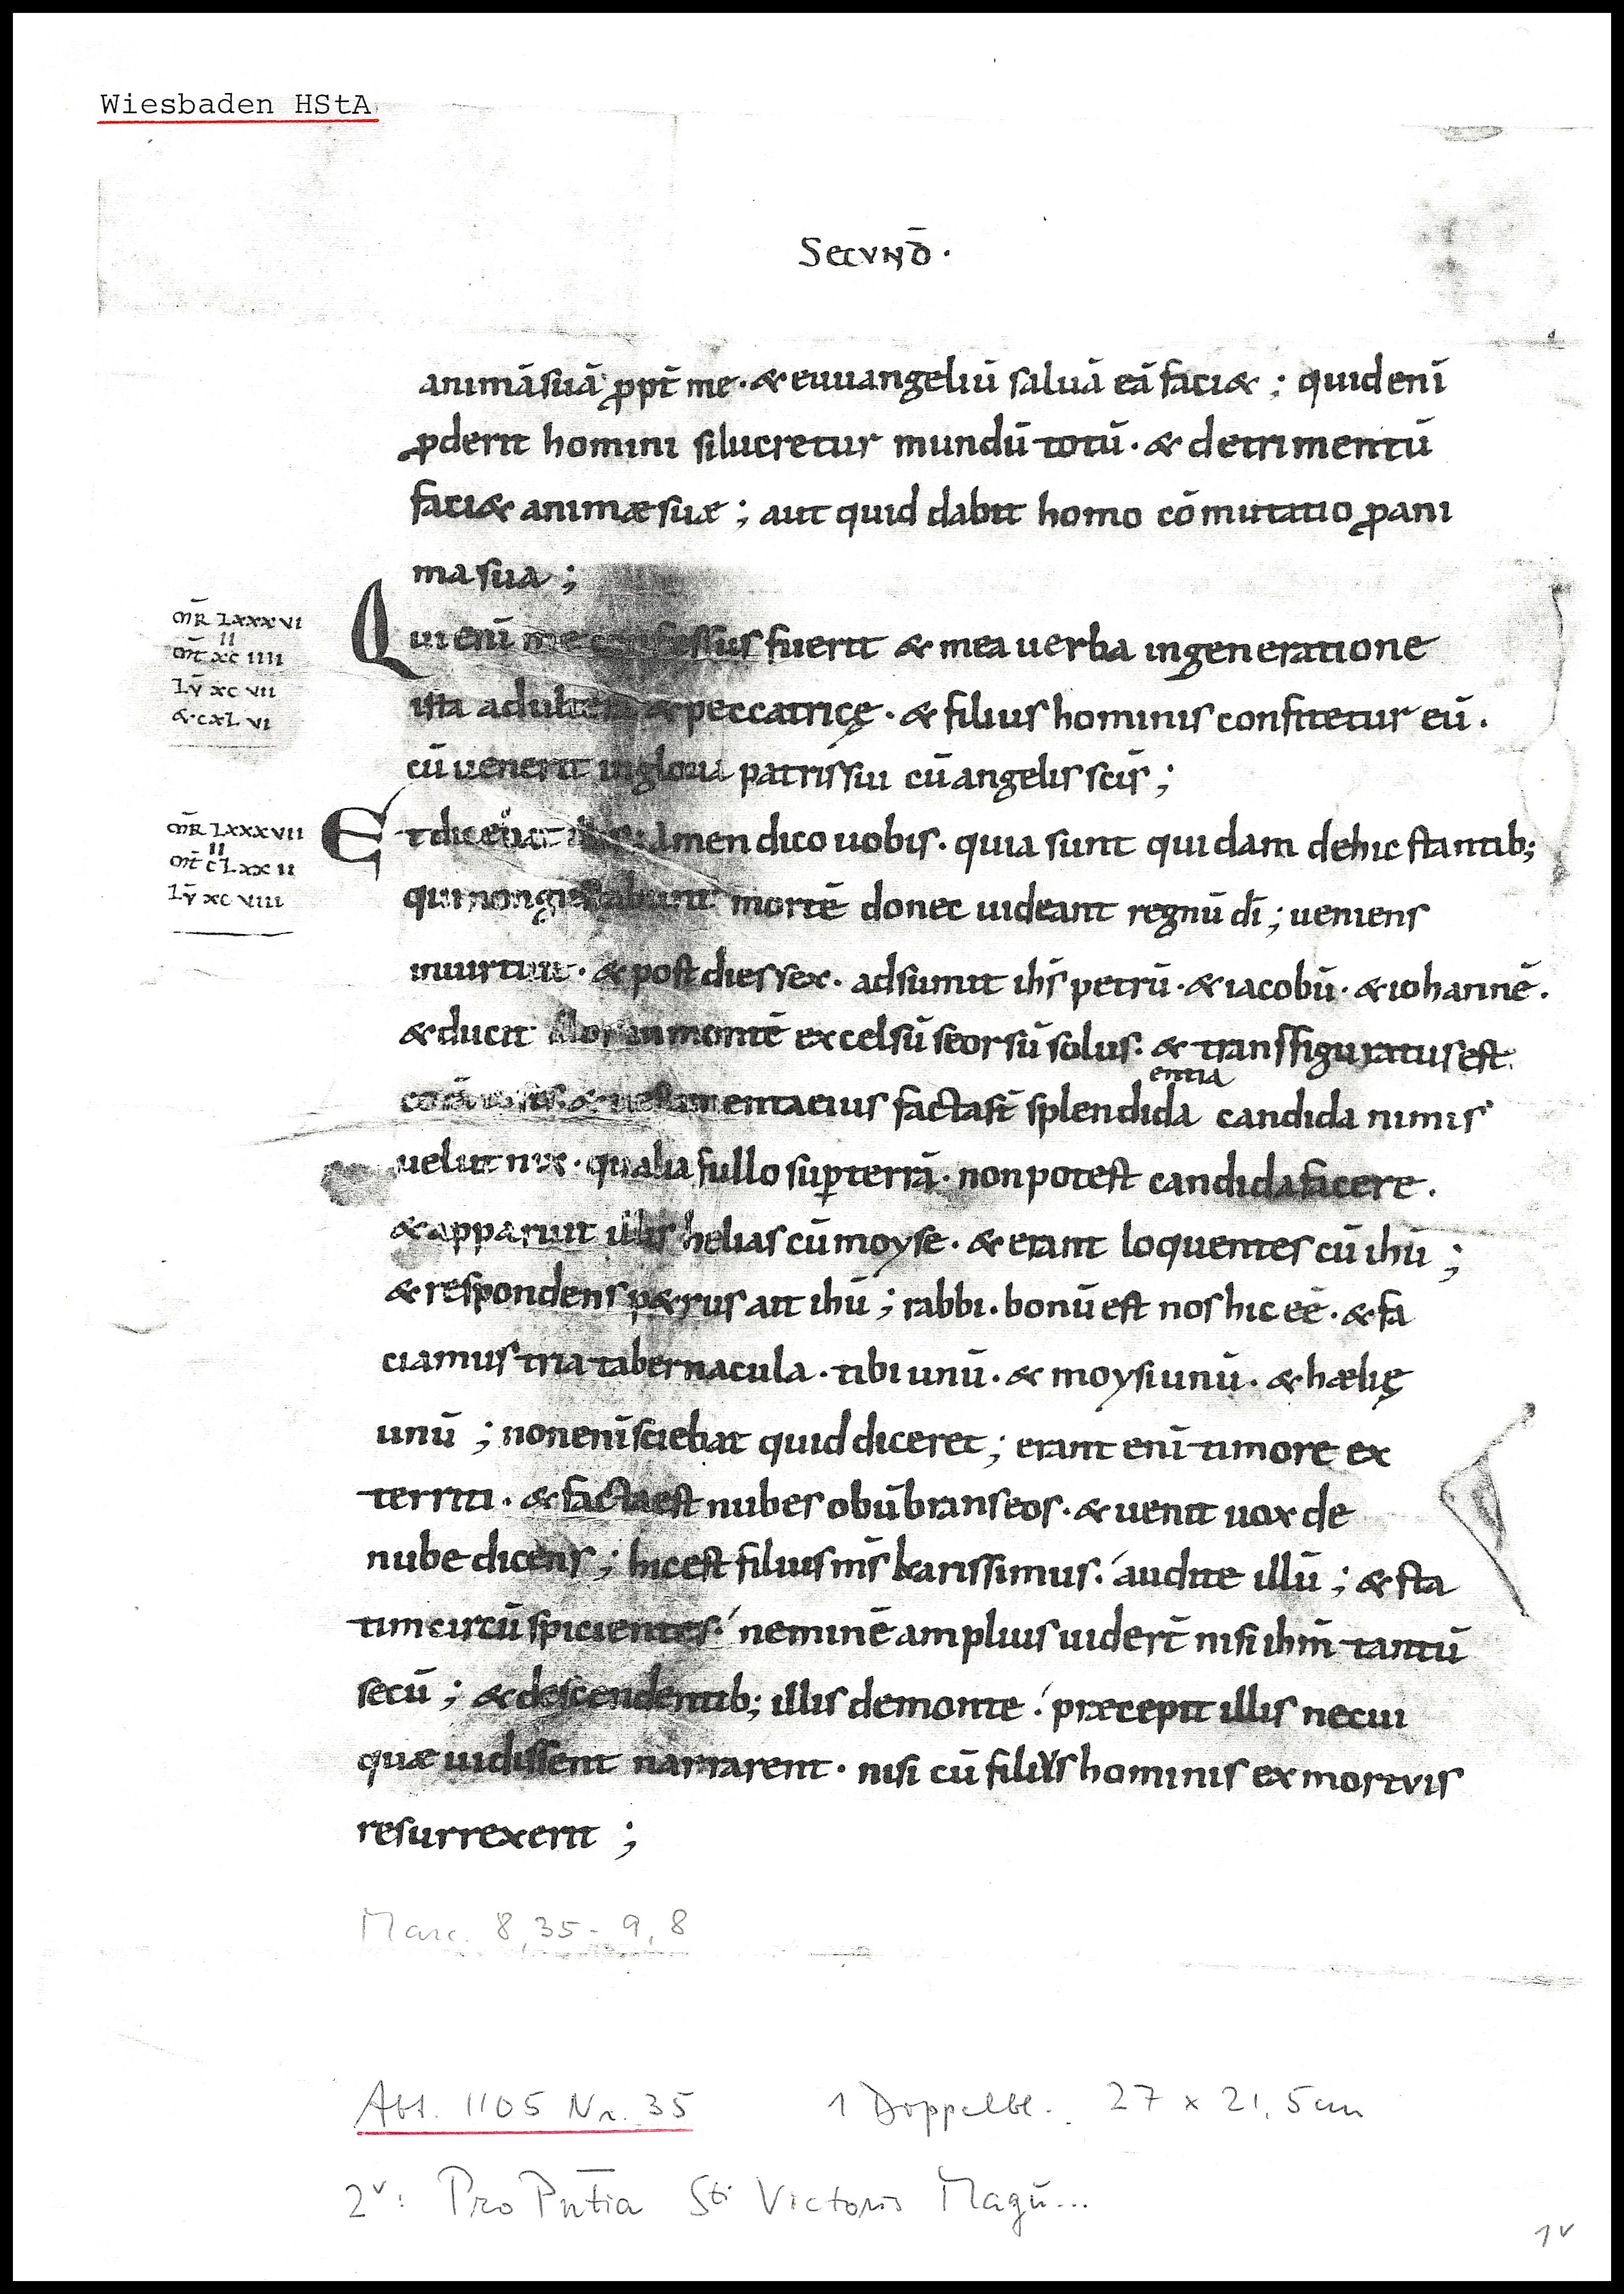 Wiesbaden HStA
Secvnd̄·
animā suā ꝓpt̄ me· & euuangeliū saluā eā faci&; quid enī
ꝓderit homini si lucretur mundū totū· & detrimentū
faci& animæ suæ; aut quid dabit homo cōmutatio ꝓ ani
ma sua;
MR̄ LXXXVI
II
MT̄ XC IIII
LV̄ XC VII
& CXL VI
Qui enī me confessus fuerit & mea uerba in generatione
ista adultera & peccatricę· & filius hominis confitetur eū·
cū uenerit in gloria patris sui cū angelis scīs;
MR̄ LXXXVII
II
MT̄ CLXX II
LV̄ XC VIII
Et dicebat illis Amen dico uobis· quia sunt quidam de hic stantib;
qui non gustabunt mortē donec uideant regnū dī; ueniens
in uirtute· & post dies sex· adsumit ihs̄ petrū· & iacobū· & iohannē·
& ducit illos in montē excelsū seorsū solus· & transfiguratus est
entia
& uestimenta eius facta st̄ splendida candida nimis
uelut nix· qualia fullo sup̄ terrā· non potest candida facere·
& apparuit illis helias cū moyse· & erant loquentes cū ihū;
& respondens p&rus ait ihū; rabbi· bonū est nos hic eē· & fa
ciamus tria tabernacula· tibi unū· & moysi unū· & hælię
unū; non enī sciebat quid diceret; erant enī timore ex
territi· & facta est nubes obūbrans eos· & uenit uox de
nube dicens; hic est filius ms̄ karissimus· audite illū; & sta
tim circū spicientes· neminē amplius uider̄t nisi ihm̄ tantū
secū; & descendentib; illis de monte· præcepit illis ne cui
quæ uidissent narrarent· nisi cū filiVs hominis ex mortvis
resurrexerit;
Marc. 8,35 - 9,8
Abt. 1105 Nr. 35 1 Doppelbl. 27 x 21,5 cm
2v: Pro Pntia Sti Victoris Magū...
1v